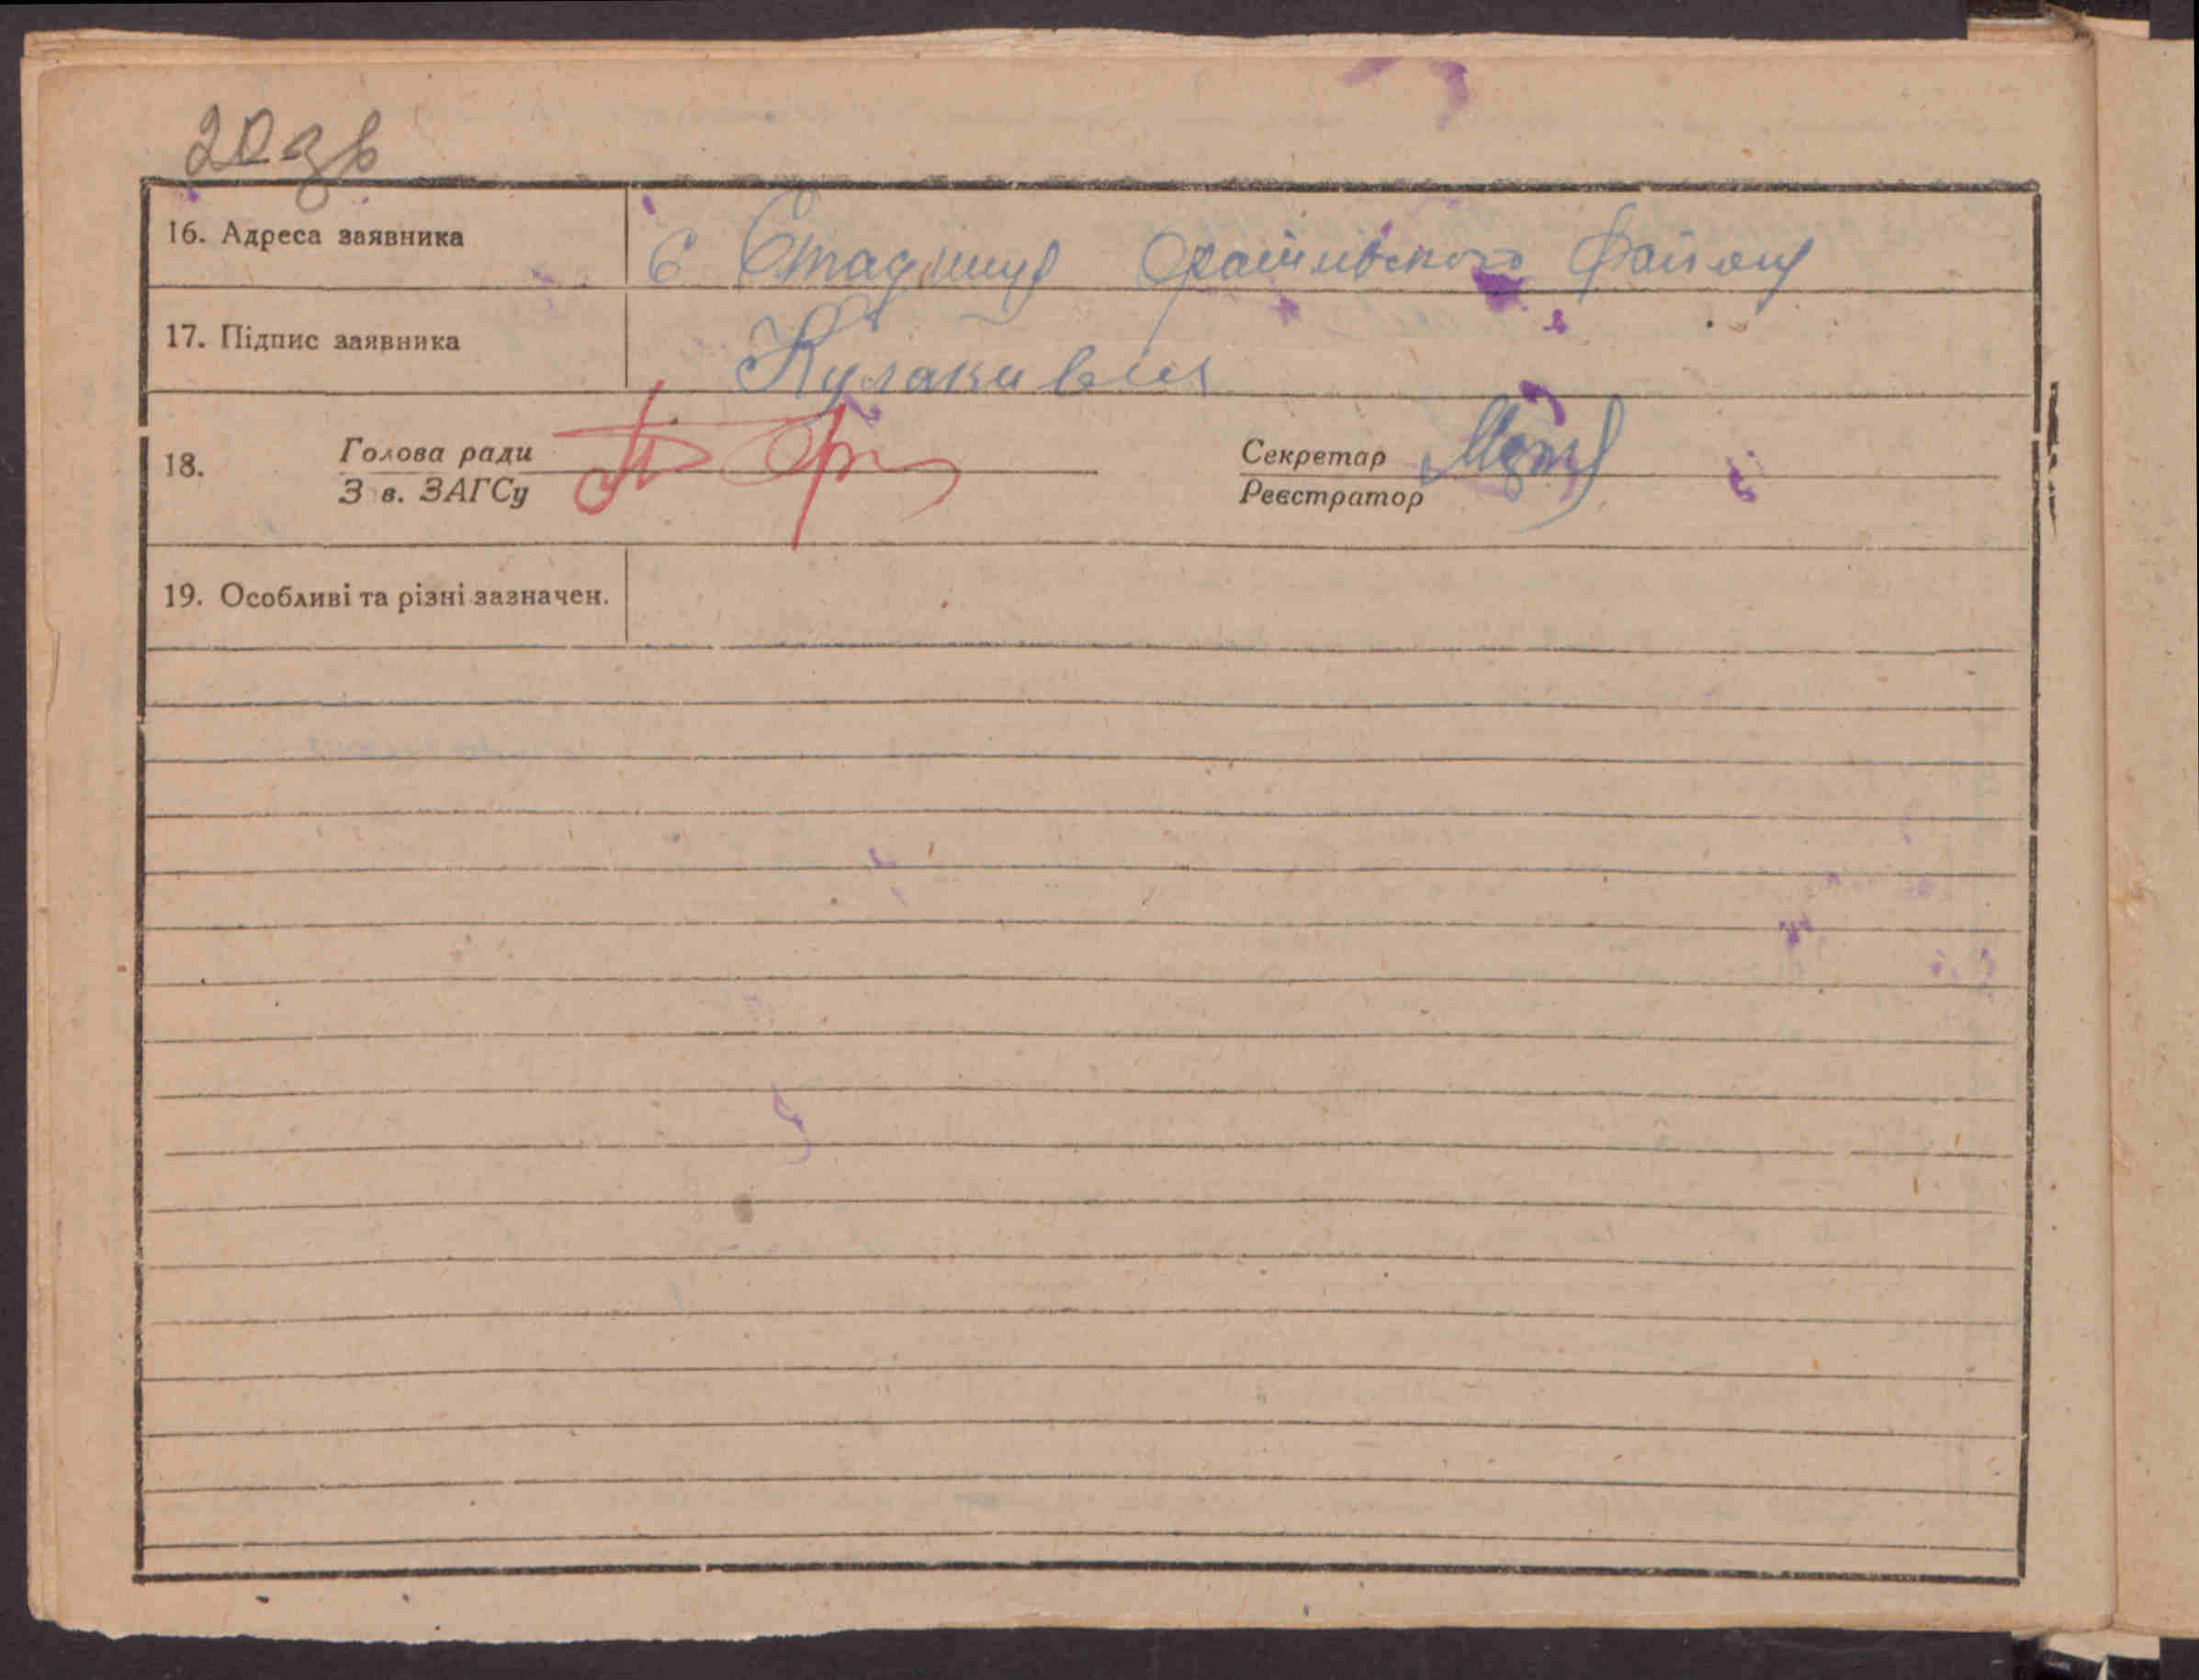 20 зв
16. Адреса заявника с Стадниця Оратівського району
17. Підпис заявника Кулаківська
18. Голова ради Секретар
Зав. ЗАГСу Реєстратор
19. Особливі та різні зазначен.